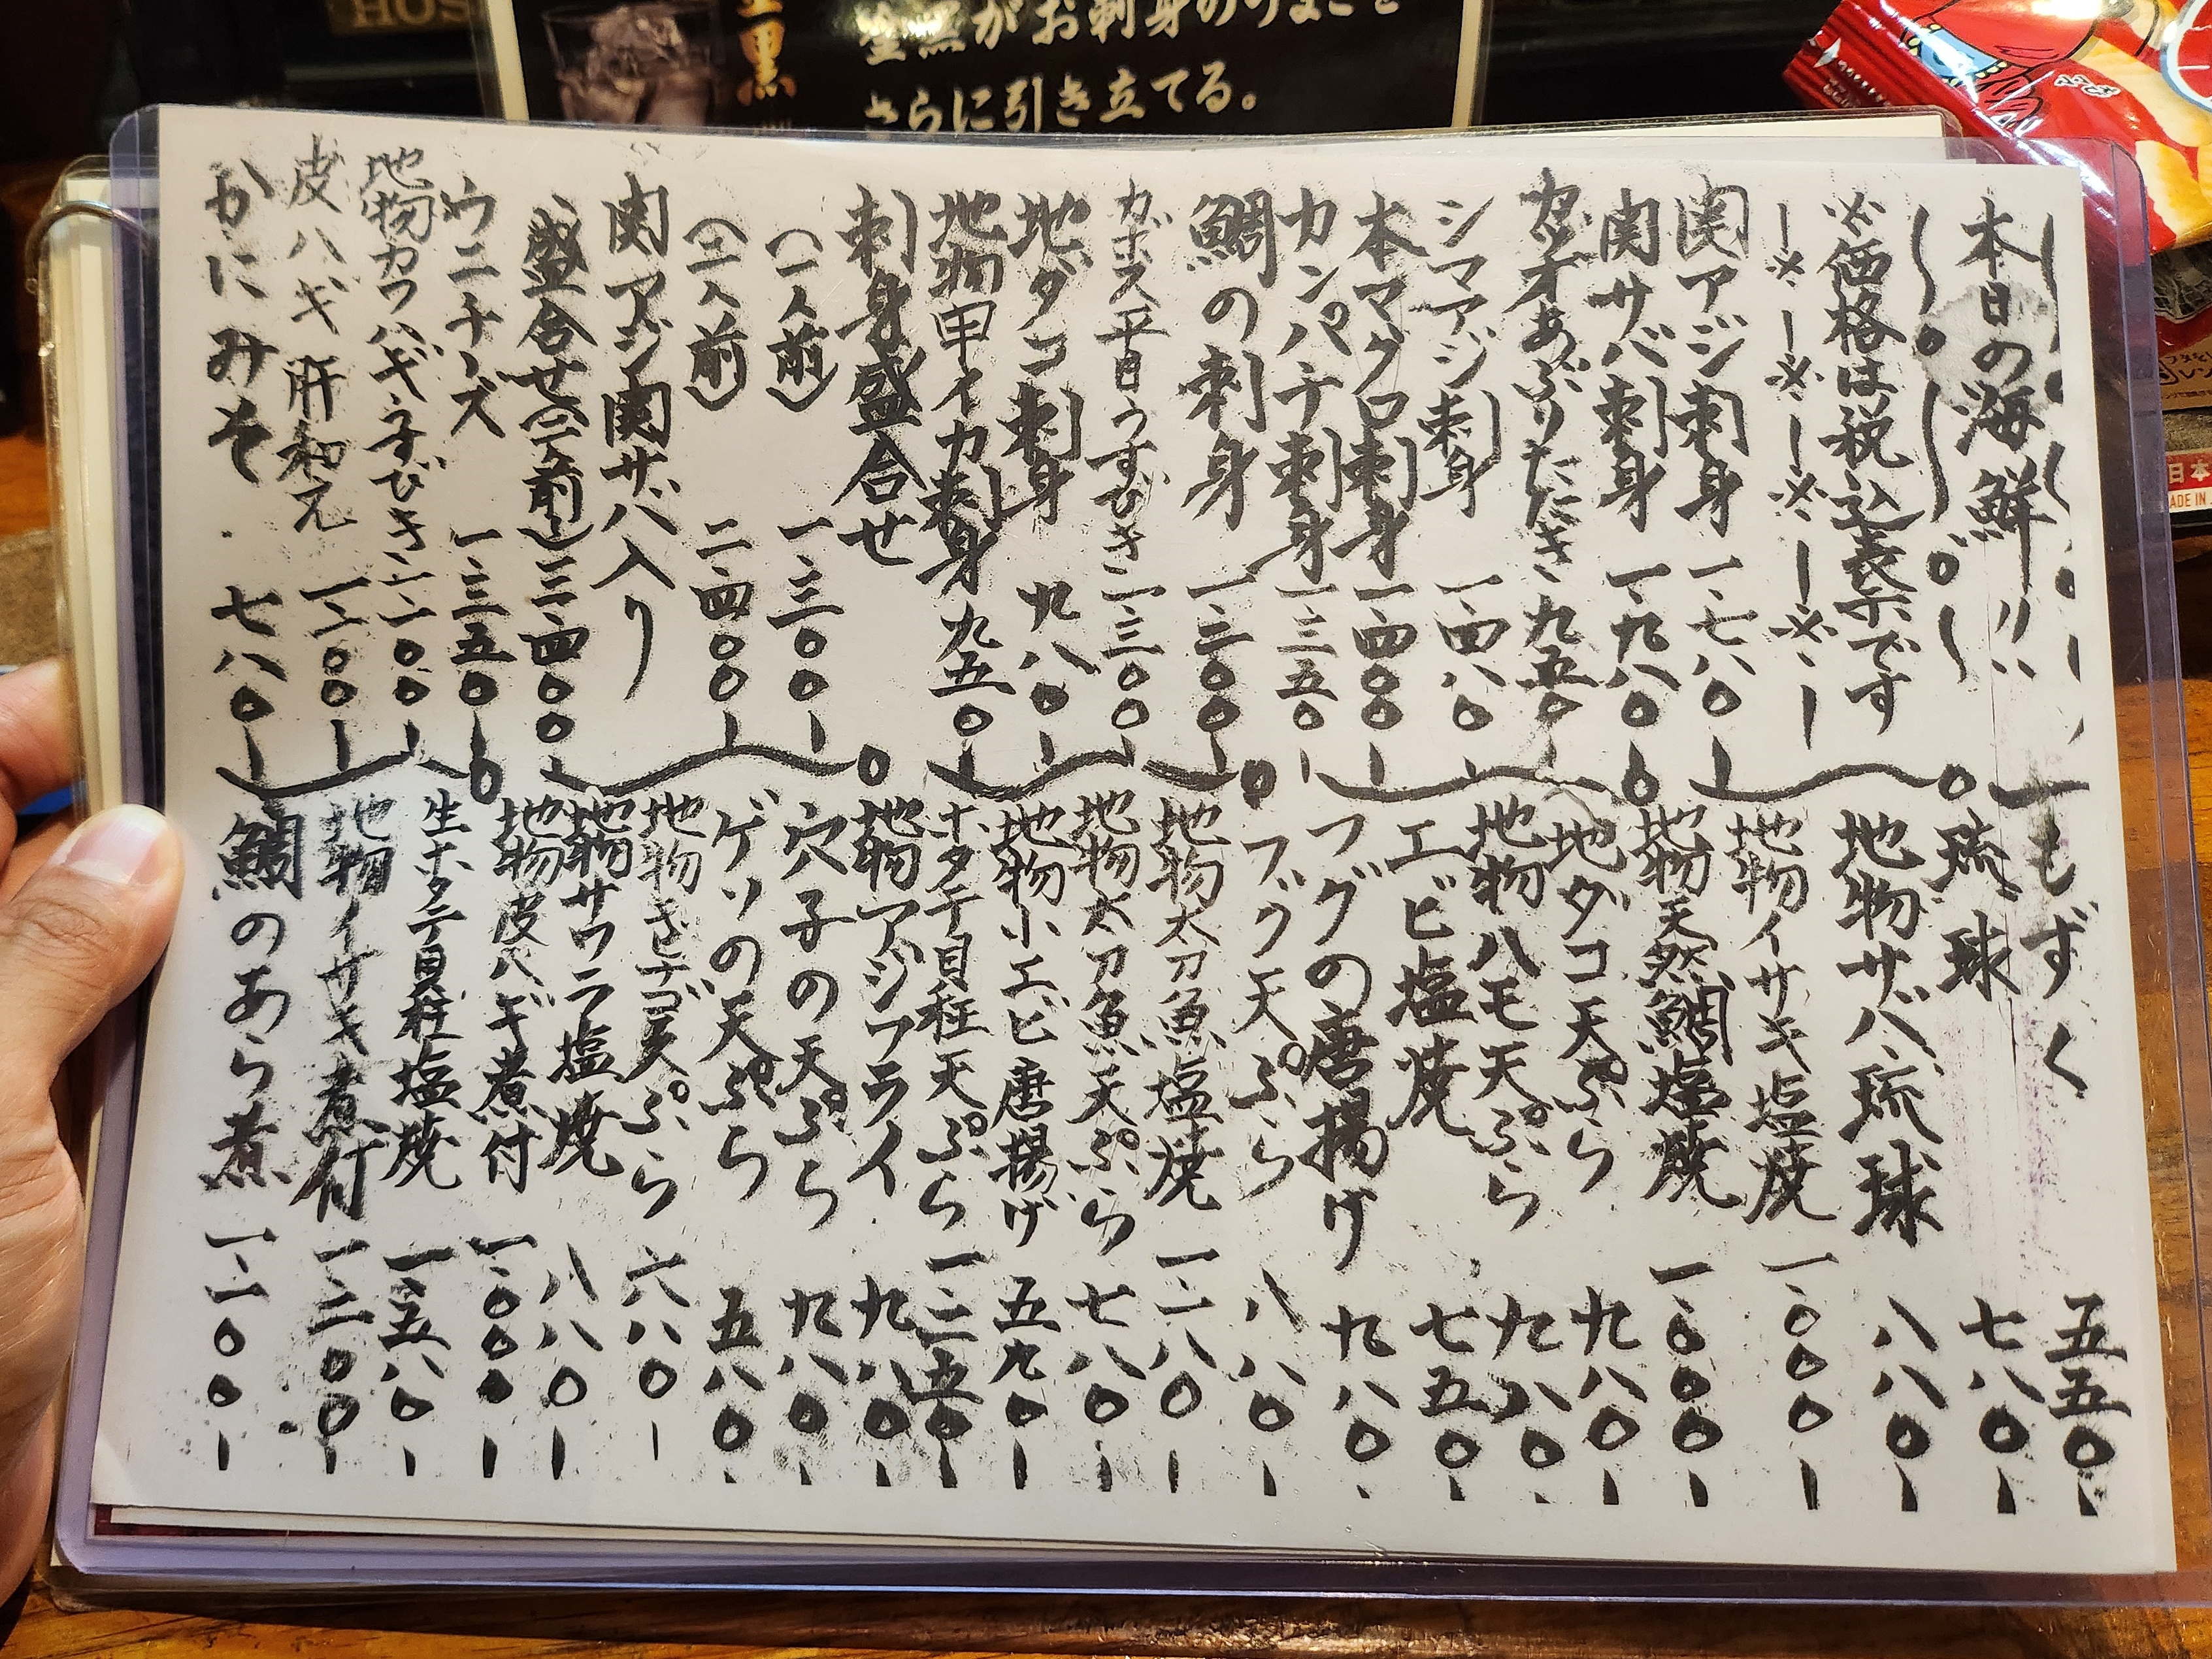 HOS
黒
がお刺身のうまさを
さらに引き立てる。
本日の海鮮!!
※価格は税込表示です
ー※ー※ー※ー※ー
関アジ刺身 一、七八〇ー
関サバ刺身 一、九八〇ー
カツオあぶりたたき 九五〇ー
シマアジ刺身 一、四八〇ー
本マグロ刺身 一、四〇〇ー
カンパチ刺身 一、三五〇ー
鯛の刺身 一、三〇〇ー
カボス平目うすびき 一、三〇〇ー
地ダコ刺身 九八〇ー
地物甲イカ刺身 九五〇ー
刺身盛合せ
(一人前) 一、三〇〇ー
(二人前) 二、四〇〇ー
関アジ関サバ入り
盛合せ(二人前) 三、四〇〇ー
ウニチーズ 一、三五〇ー
地物カワハギうすびき 一、二〇〇ー
皮ハギ肝和え 一、二〇〇ー
かにみそ 七八〇ー
もずく 五五〇ー
琉球 七八〇ー
地物サバ琉球 八八〇ー
地物イサキ塩焼 一、〇〇〇ー
地物天然鯛塩焼 一、〇〇〇ー
地ダコ天ぷら 九八〇ー
地物ハモ天ぷら 九八〇ー
エビ塩焼 七五〇ー
フグの唐揚げ 九八〇ー
フグ天ぷら 八八〇ー
地物太刀魚塩焼 一、一八〇ー
地物太刀魚天ぷら 七八〇ー
地物小エビ唐揚げ 五九〇ー
ホタテ貝柱天ぷら 一、二五〇ー
地物アジフライ 九八〇ー
穴子の天ぷら 九八〇ー
ゲソの天ぷら 五八〇ー
地物きビナゴ天ぷら 六八〇ー
地物サワラ塩焼 八八〇ー
地物皮ハギ煮付 一、〇〇〇ー
生ホタテ貝柱塩焼 一、五八〇ー
地物イサキ煮付 一、二〇〇ー
鯛のあら煮 一、一〇〇ー
日本